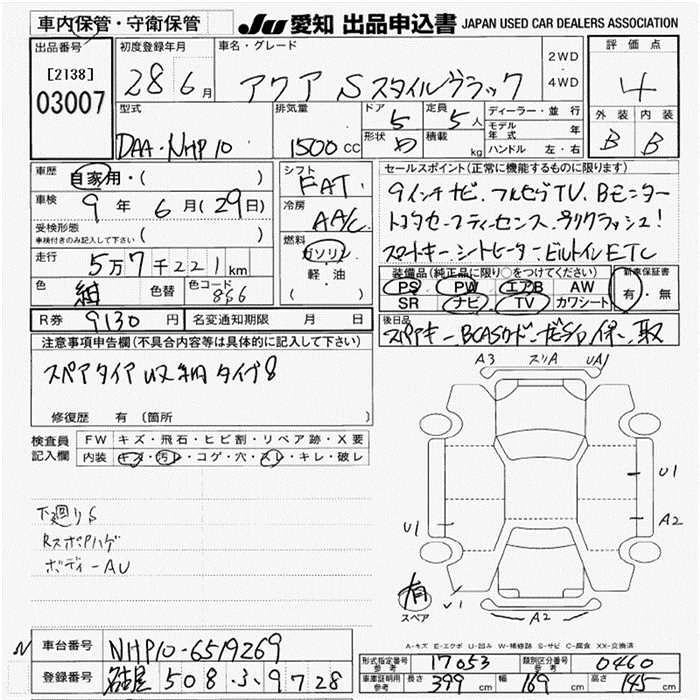 車内保管・守衛保管
JU 愛知 出品申込書 JAPAN USED CAR DEALERS ASSOCIATION
出品番号
[2138]
03007
初度登録年月
28 6月
車名・グレード
アクア Sスタイルブラック
2WD
・
4WD
評価点
4
外装 内装
B B
型式
DAA-NHP10
排気量
1500 CC
ドア 5
形状 ワ
定員 5 人
積載 kg
ディーラー・並行
モデル年式 年
ハンドル 左・右
車歴
自家用・( )
車検
9年 6月(29日)
受検形態
車検付きのみ記入して下さい ( )
走行
5万7千221km
色
紺 色替 色コード 8S6
シフト
FAT
冷房
AA/C
燃料
ガソリン
軽・油
( )
セールスポイント(正常に機能するものに限ります)
9インチナビ.フルセグTV.Bモニター
トヨタセーフティーセンス.
スマートキー.シートヒーター.ビルトインETC
装備品(純正品に限り○をつけてください)
PS PW エアB AW
SR ナビ TV カワシート
新車保証書
有・無
R券 9130円 名変通知期限 月 日
後日品
スペアキー.BCASカード.ナビSD.保.取
注意事項申告欄(不具合内容等は具体的に記入して下さい)
スペアタイヤ収納タイプ8
修復歴 有(箇所
検査員記入欄
FW キズ・飛石・ヒビ割・リペア跡・X要
内装 キズ・汚レ・コゲ・穴・スレ・キレ・破レ
下廻りS
RスポPハゲ
ボディーAU
A3 スリA UA1
U1
A2
U1
有
スペア
V1
A2
A-キズ E-エクボ U-凹み W-補修跡 S-サビ C-腐食 XX-交換済
N
車台番号 NHP10-6519269
登録番号 名古屋 508 ネ 9728
形式指定番号 参考 17053 類別区分番号 参考 0460
車庫証明用 参考 長さ 399cm 幅 169cm 高さ 145cm